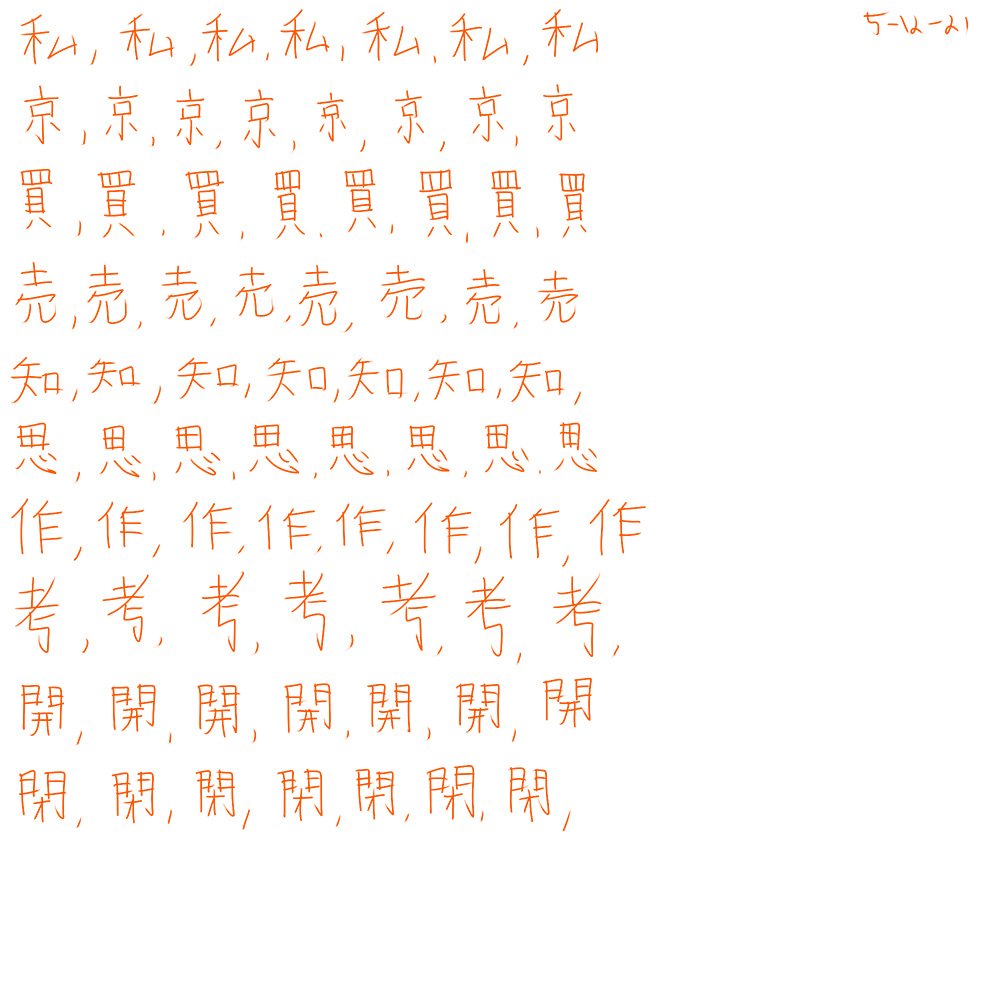 私, 私, 私, 私, 私, 私, 私
5-12-21
京, 京, 京, 京, 京, 京, 京, 京
買, 買, 買, 買, 買, 買, 買, 買
売, 売, 売, 売, 売, 売, 売, 売
知, 知, 知, 知, 知, 知, 知,
思, 思, 思, 思, 思, 思, 思, 思
作, 作, 作, 作, 作, 作, 作, 作
考, 考, 考, 考, 考, 考, 考,
開, 開, 開, 開, 開, 開, 開
閉, 閉, 閉, 閉, 閉, 閉, 閉,